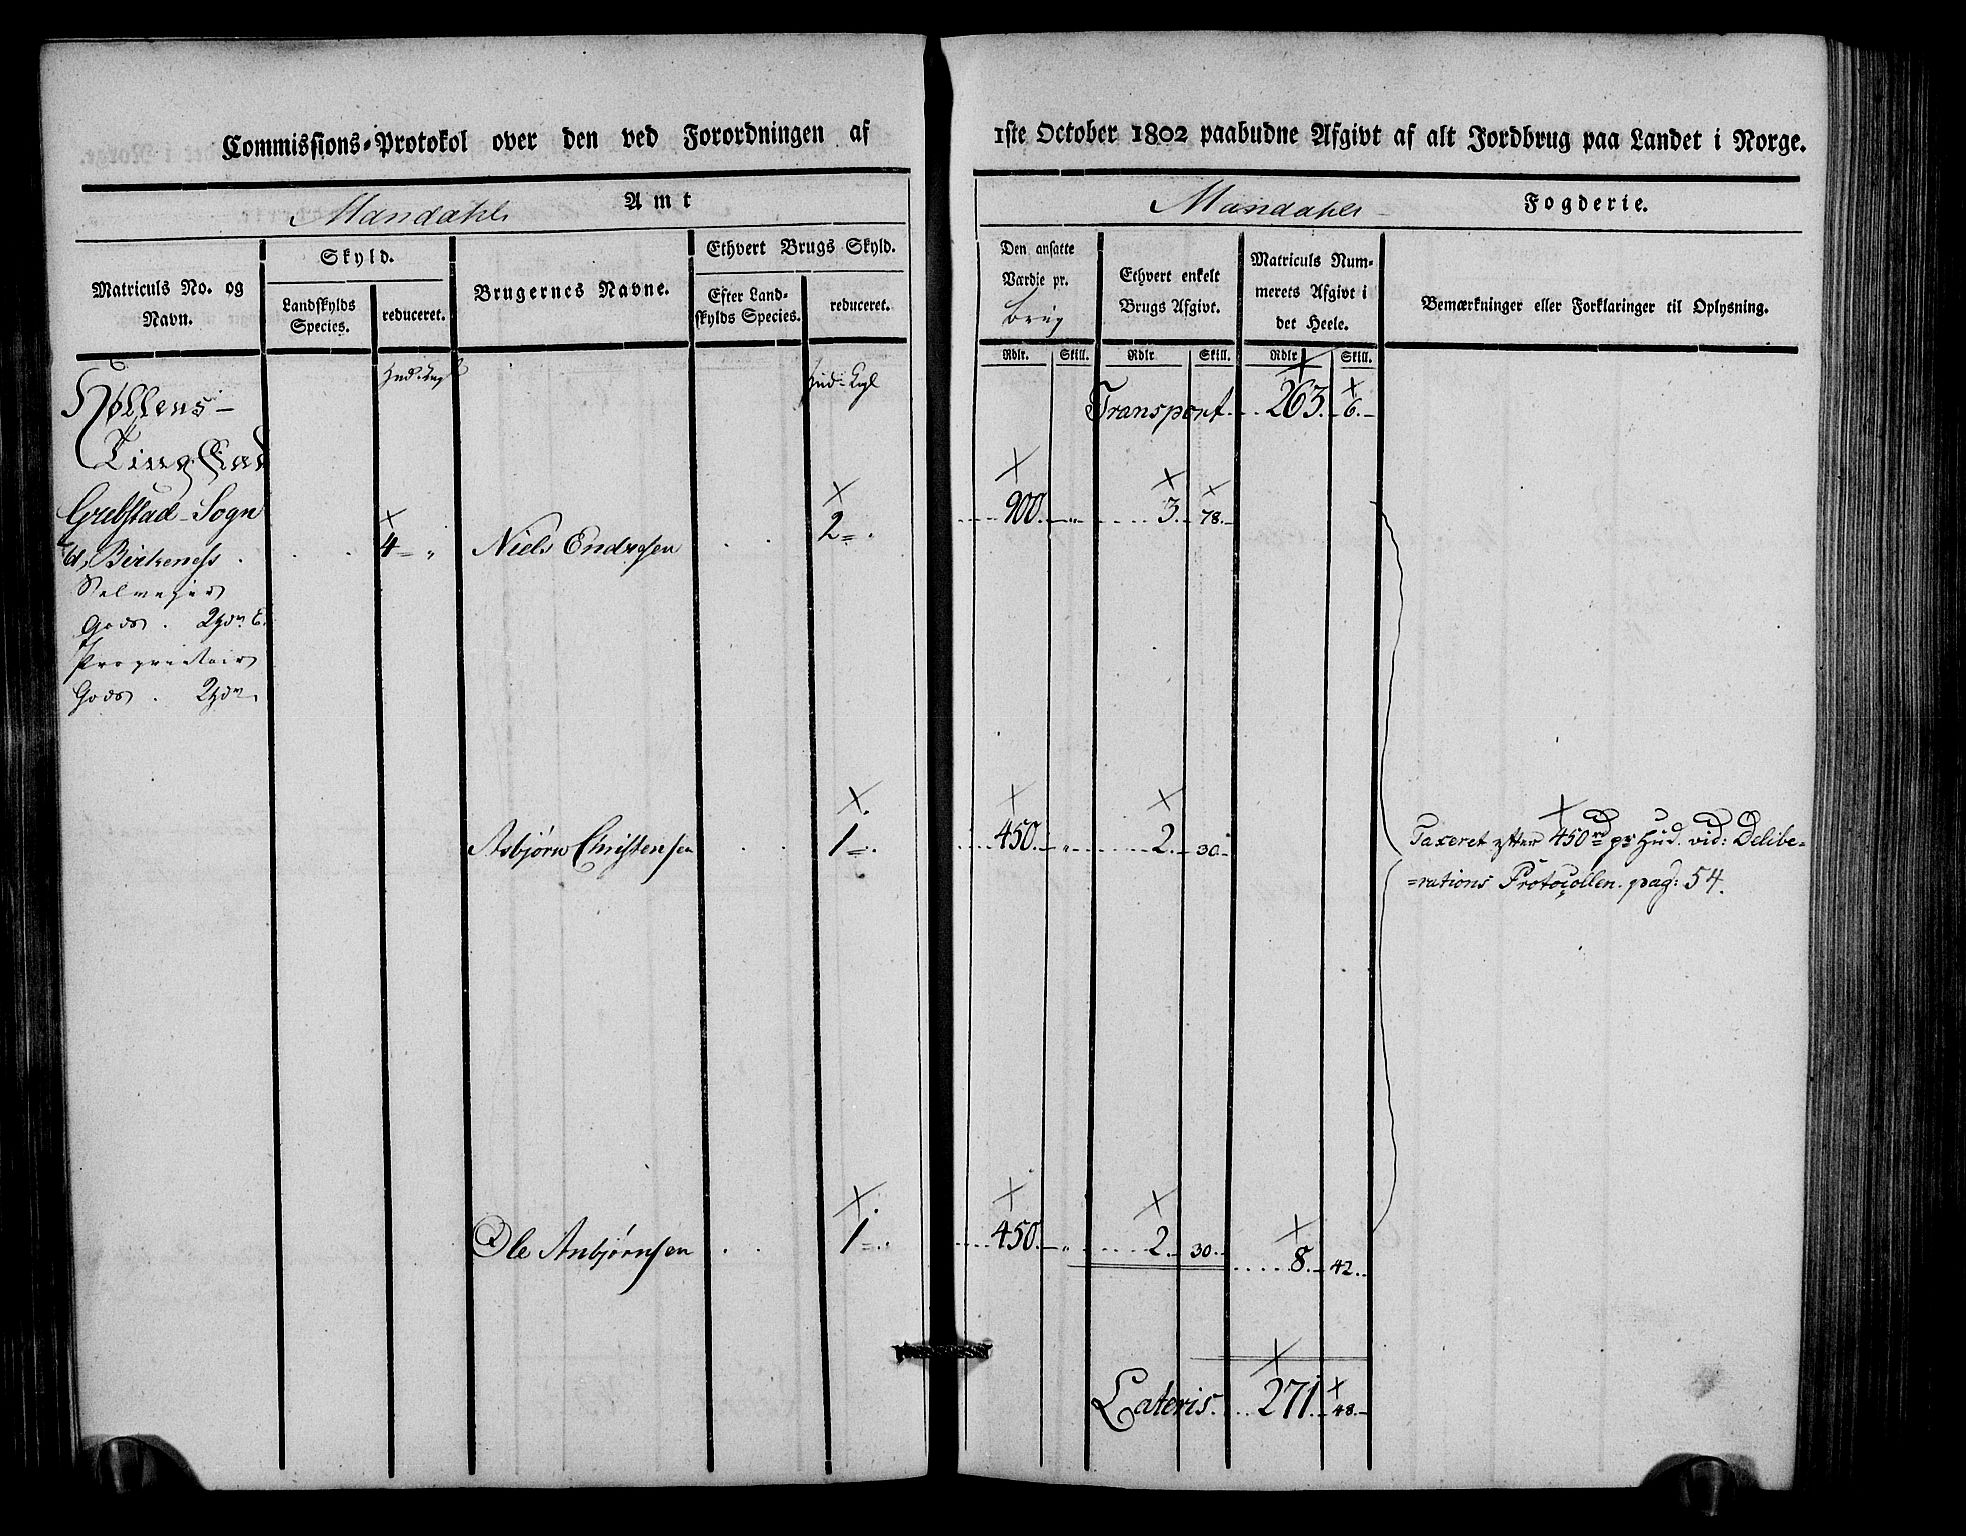 Commissions-Protokol over den ved Forordningen af
Mandahls Amt
Matriculs No. og Navn.
Skyld.
Landskylds Species.
reduceret.
Brugernes Navne.
Ethvert Brugs Skyld.
Efter Landskylds Species.
reduceret.
Hud:
Hud:
Tinglaug
Grebstad Sogn
Birkeness . . . 4 = " Niels Endresen . . 2 = .
Selveyer
Gods .
Proprietair
Gods .
Asbjørn Christensen . . 1 = .
Ole Anbjørnsen . . 1 = .
1ste October 1802 paabudne Afgivt af alt Jordbrug paa Landet i Norge.
Mandahls Fogderie.
Den ansatte Værdie pr. Brug
Ethvert enkelt Brugs Afgivt.
Matriculs Nummerets Afgivt i det Heele.
Bemærkninger eller Forklaringer til Oplysning.
Rdlr. Skill. Rdlr. Skill. Rdlr. Skill.
Transport. . . 263. 6.
900. " 3. 78.
450. " 2. 30.
Taxeret efter 450rd pr Hud. vid: Delibe=
=rations Protocollen. pag: 54.
450. " 2. 30. 8. 42.
Lateris. . . 271. 48.